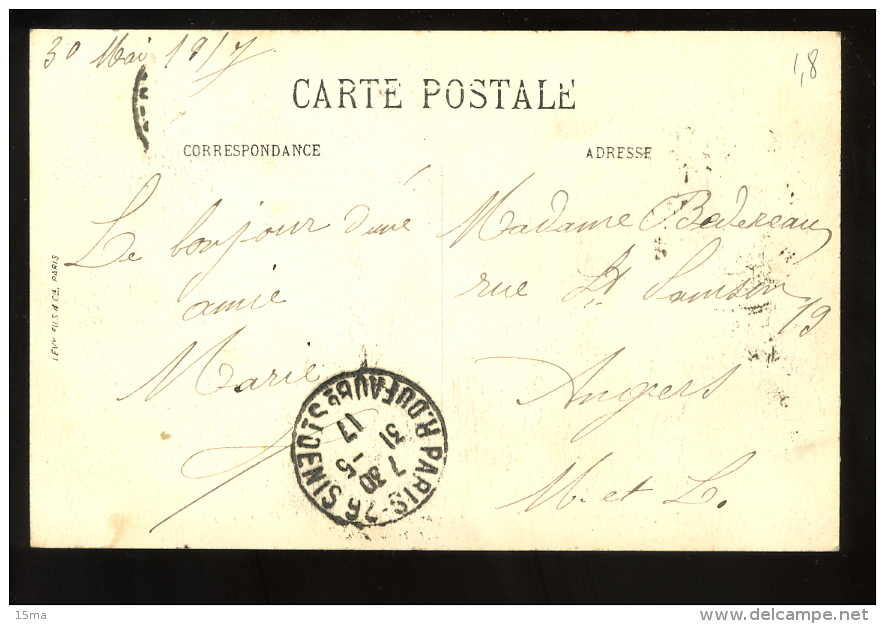 30 Mai 1917
1,8
CARTE POSTALE
CORRESPONDANCE
ADRESSE
Le bonjour d'une
amie
Marie
Madame Bedereau
rue St Samson
19
Angers
M. et L.
LEVY FILS & Cie, PARIS
PARIS-76 R. DU FAUBg ST DENIS
7 30
31 - 5
17
15ma
delcampe.net